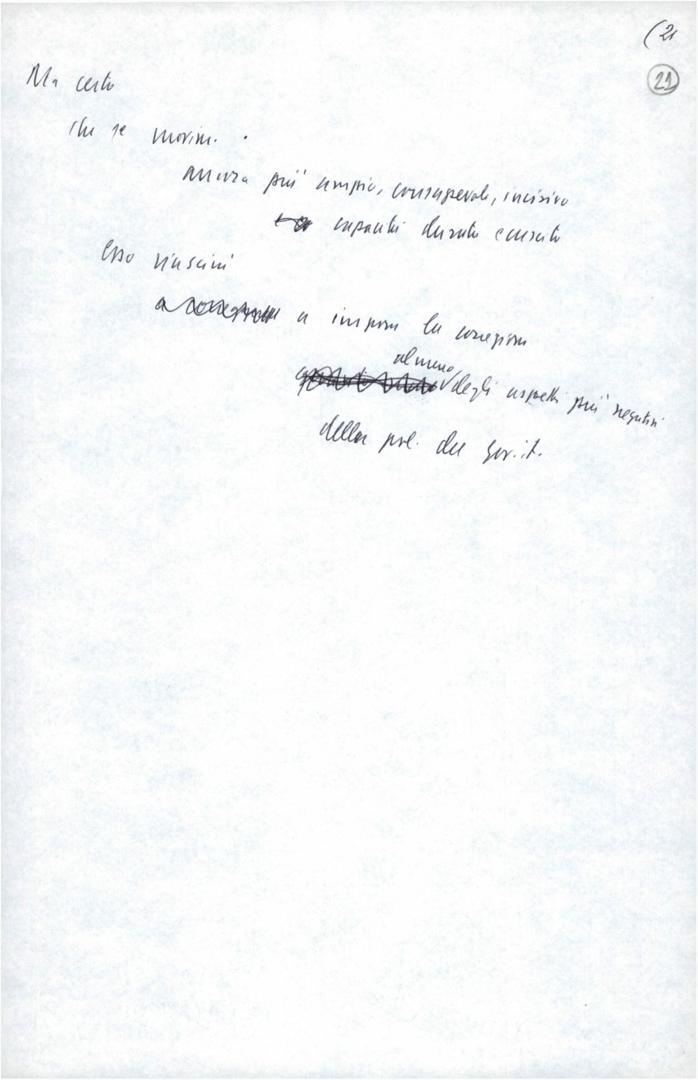 (21
21
Ma certo
che se movim.
ancora più ampio, consapevole, incisivo
capacità durata
Esso riuscirà
a imporre la correzione
almeno
degli aspetti più negativi
della pol. del gov. it.